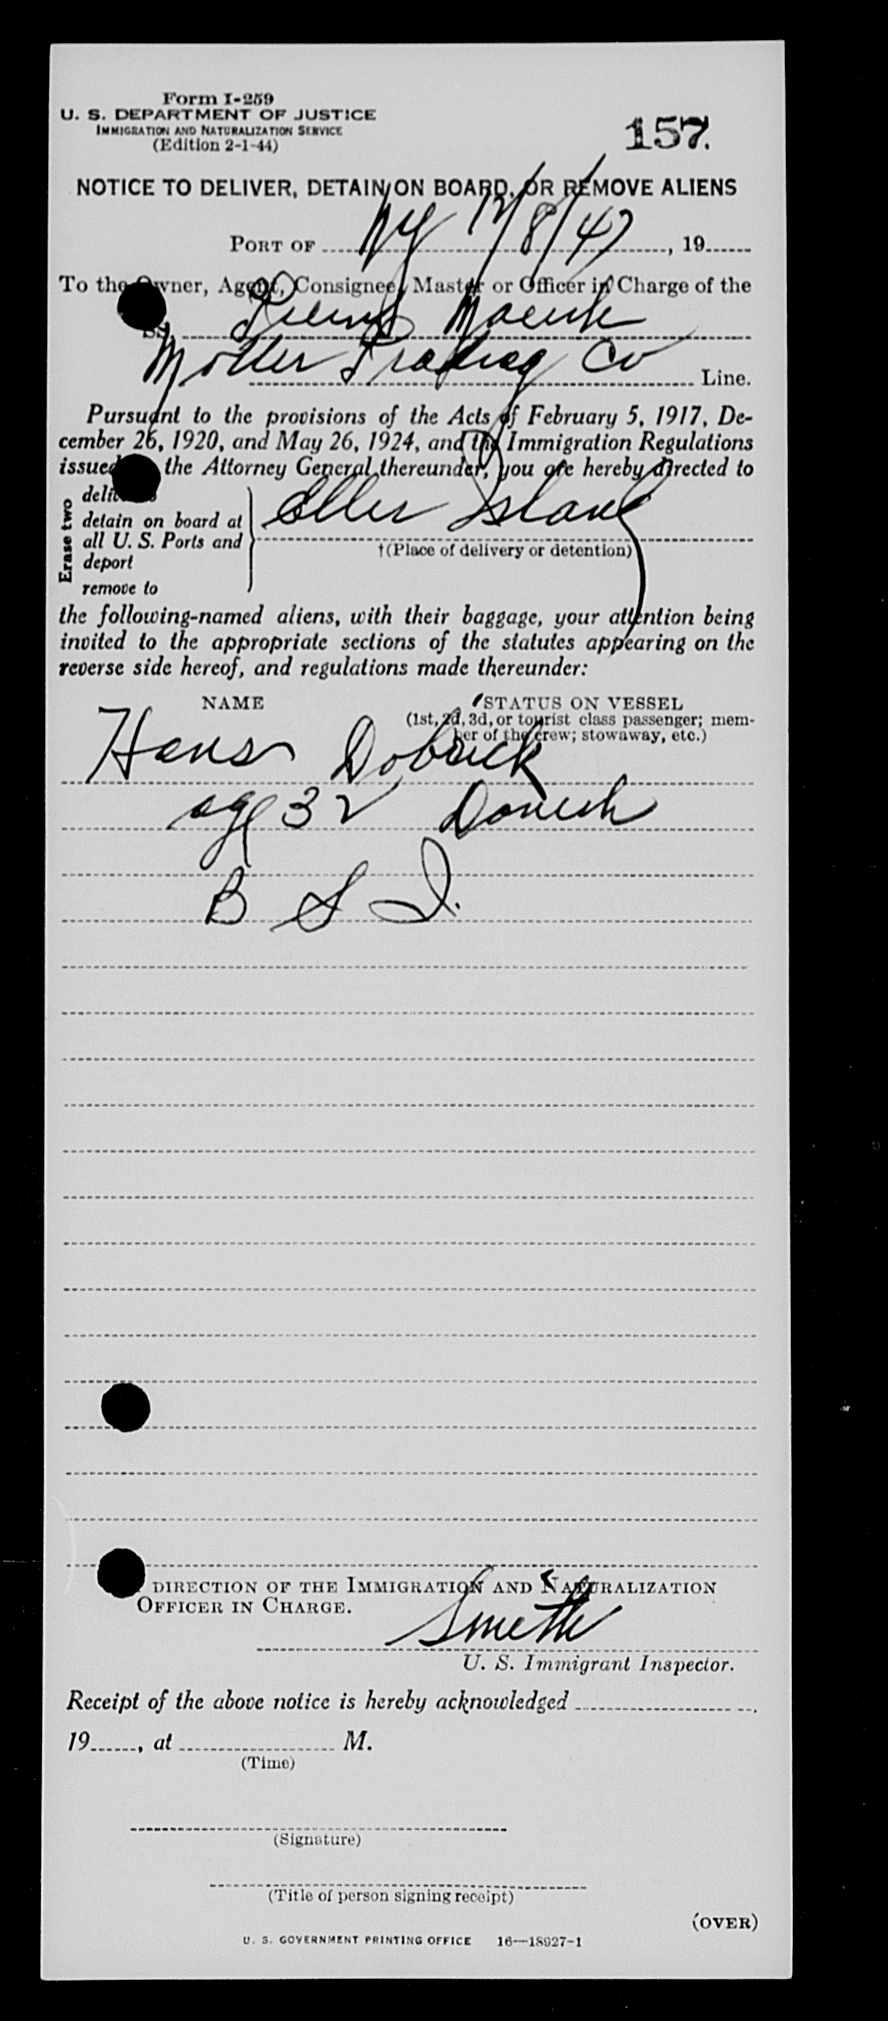 Form I-259
U. S. DEPARTMENT OF JUSTICE
IMMIGRATION AND NATURALIZATION SERVICE
(Edition 2-1-44)
157.
NOTICE TO DELIVER, DETAIN ON BOARD, OR REMOVE ALIENS
PORT OF NY 12/8/47, 19
To the Owner, Agent, Consignee, Master or Officer in Charge of the
SS. Maersk
Moller Trading Co Line.
Pursuant to the provisions of the Acts of February 5, 1917, De-
cember 26, 1920, and May 26, 1924, and the Immigration Regulations
issued the Attorney General thereunder, you are hereby directed to
Erase two
deliver
detain on board at
all U. S. Ports and
deport
remove to
Ellis Island
†(Place of delivery or detention)
the following-named aliens, with their baggage, your attention being
invited to the appropriate sections of the statutes appearing on the
reverse side hereof, and regulations made thereunder:
NAME STATUS ON VESSEL
(1st, 2d, 3d, or tourist class passenger; mem-
ber of the crew; stowaway, etc.)
Hans Dobrick
age 32 Danish
B S I.
DIRECTION OF THE IMMIGRATION AND NATURALIZATION
OFFICER IN CHARGE.
Smith
U. S. Immigrant Inspector.
Receipt of the above notice is hereby acknowledged
19, at M.
(Time)
(Signature)
(Title of person signing receipt)
(OVER)
U. S. GOVERNMENT PRINTING OFFICE 16—18927-1